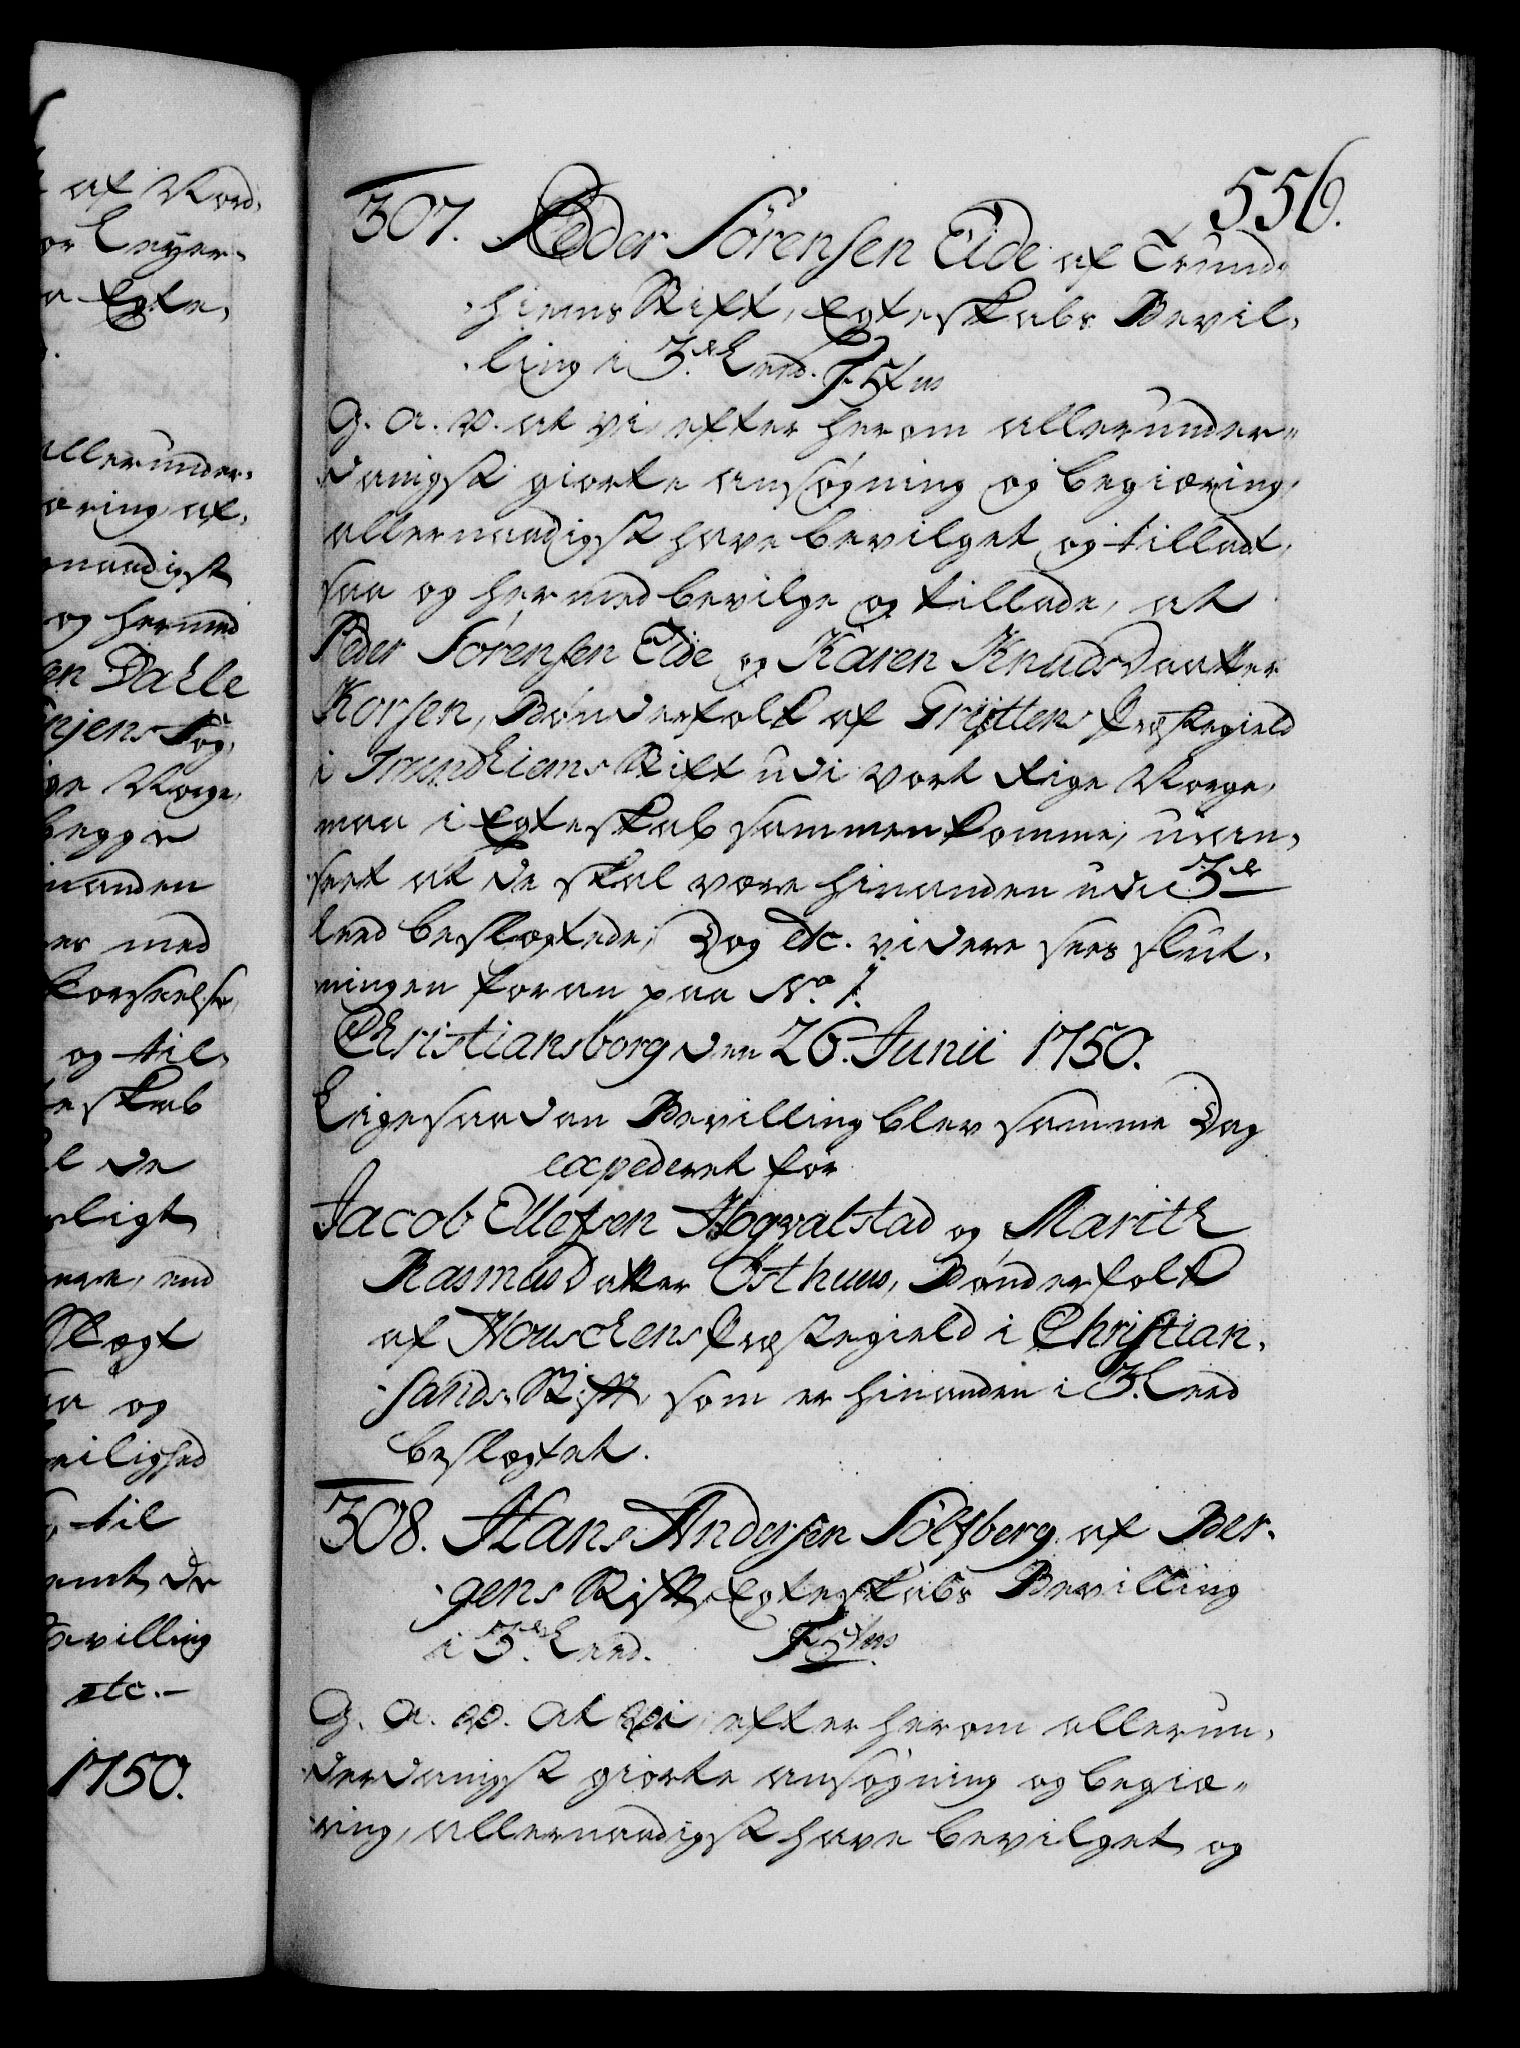 af Nord,
or Leyer-
a Egte,
allerunder-
æring af,
naadigst
og hermed
en Dahle
njens Sog,
ge Norge,
begge
inanden
er med
Forskrel,se
og til,
eskab
l de
rligt
ere, end
Slægt
a og
eilighed
til
emt, de
Bevilling
etc.-
1750.
556.
307. Peder Sörensen Eide af Trund-
hiems Stift, Egteskabs Bevil-
ling i 3.de Leed.
G. A. V. at vi, efter herom allerunder-
danigst giorte ansøgning og begiæring,
allernaadigst have bevilget og tilladt,
saa og hermed bevilge og tillade, at
Peder Sörensen Eide og Karen Knudsdaatter
Korsen, Bønderfolk af Gryttens Præstegield
i Trundhiems Stift udi vort Rige Norge,
maa i Egteskab sammenkomme, uan-
seet at de skal være hinanden udi 3de
Leed beslægtede; Dog etc. videre sees slut-
ningen foran paa No. 1.
Christiansborg den 26. Junii 1750.
Ligesaadan Bevilling blev samme Dag
expederet for
Jacob Ellefsen Hogvalstad og Marith
Rasmusdatter Østhuus, Bønderfolk
af Houschens Præstegield i Christian-
sands Stift, som er hinanden i 3. Leed
beslægtet.
308. Hans Andersen Sölfberg af Ber-
gens Stift, Egteskabs Bevilling
i 3.de Leed.
G. A. V. At vi, efter herom allerun-
derdanigst giorte ansøgning og begiæ-
ring, allernaadigst have bevilget og